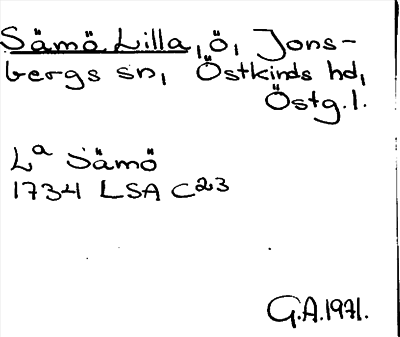 Sämö, Lilla, ö, Jons-
bergs sn, Östkinds hd,
Östg.l.
La Sämö
1734 LSA C23
G.A.1971.